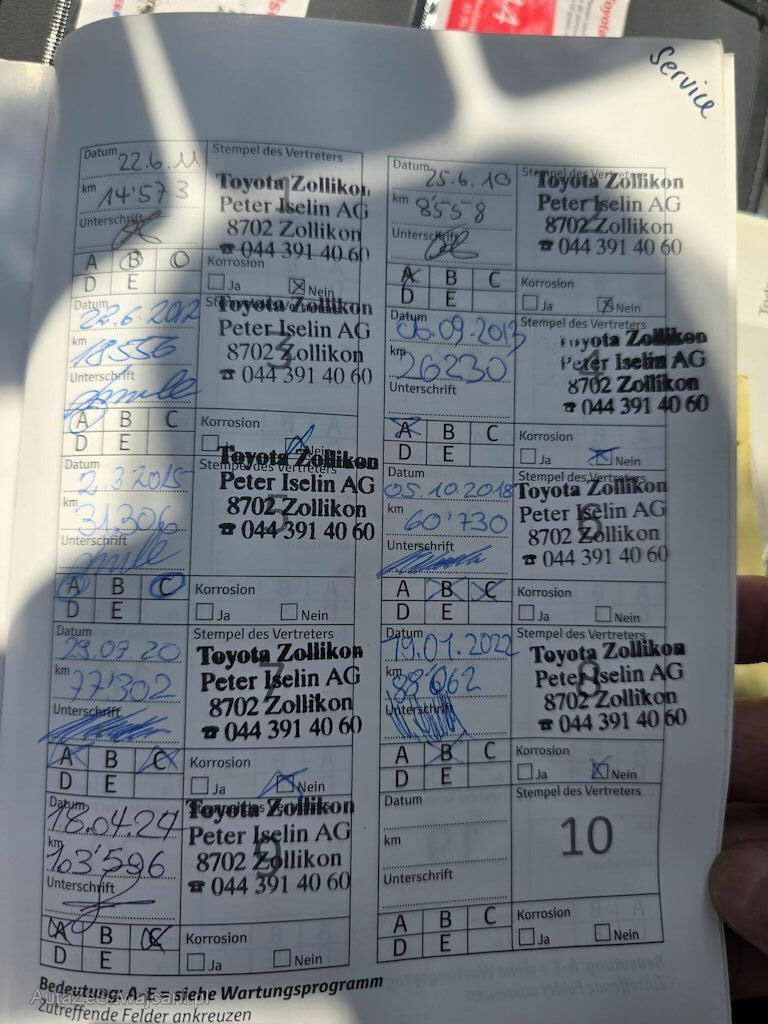 Service
Datum 22.6.11
km 14'573
Unterschrift
A B C
D E
Stempel des Vertreters
1
Toyota Zollikon
Peter Iselin AG
8702 Zollikon
☎ 044 391 40 60
Korrosion
Ja Nein
Datum 25.6.10
km 8558
Unterschrift
A B C
D E
Stempel des Vertreters
2
Toyota Zollikon
Peter Iselin AG
8702 Zollikon
☎ 044 391 40 60
Korrosion
Ja Nein
Datum 22.6.2012
km 18556
Unterschrift
A B C
D E
Stempel des Vertreters
3
Toyota Zollikon
Peter Iselin AG
8702 Zollikon
☎ 044 391 40 60
Korrosion
Ja Nein
Datum 06.09.2013
km 26230
Unterschrift
A B C
D E
Stempel des Vertreters
4
Toyota Zollikon
Peter Iselin AG
8702 Zollikon
☎ 044 391 40 60
Korrosion
Ja Nein
Datum 2.3.2015
km 31,306
Unterschrift
A B C
D E
Stempel des Vertreters
5
Toyota Zollikon
Peter Iselin AG
8702 Zollikon
☎ 044 391 40 60
Korrosion
Ja Nein
Datum 05.10.2018
km 60'730
Unterschrift
A B C
D E
Stempel des Vertreters
6
Toyota Zollikon
Peter Iselin AG
8702 Zollikon
☎ 044 391 40 60
Korrosion
Ja Nein
Datum 29.07.20
km 77'302
Unterschrift
A B C
D E
Stempel des Vertreters
7
Toyota Zollikon
Peter Iselin AG
8702 Zollikon
☎ 044 391 40 60
Korrosion
Ja Nein
Datum 19.01.2022
km 88'062
Unterschrift
A B C
D E
Stempel des Vertreters
8
Toyota Zollikon
Peter Iselin AG
8702 Zollikon
☎ 044 391 40 60
Korrosion
Ja Nein
Datum 18.04.24
km 103'596
Unterschrift
A B C
D E
Stempel des Vertreters
9
Toyota Zollikon
Peter Iselin AG
8702 Zollikon
☎ 044 391 40 60
Korrosion
Ja Nein
Datum
km
Unterschrift
A B C
D E
Stempel des Vertreters
10
Korrosion
Ja Nein
Bedeutung: A-E = siehe Wartungsprogramm
Zutreffende Felder ankreuzen
AutaZeSzwajcarii.pl